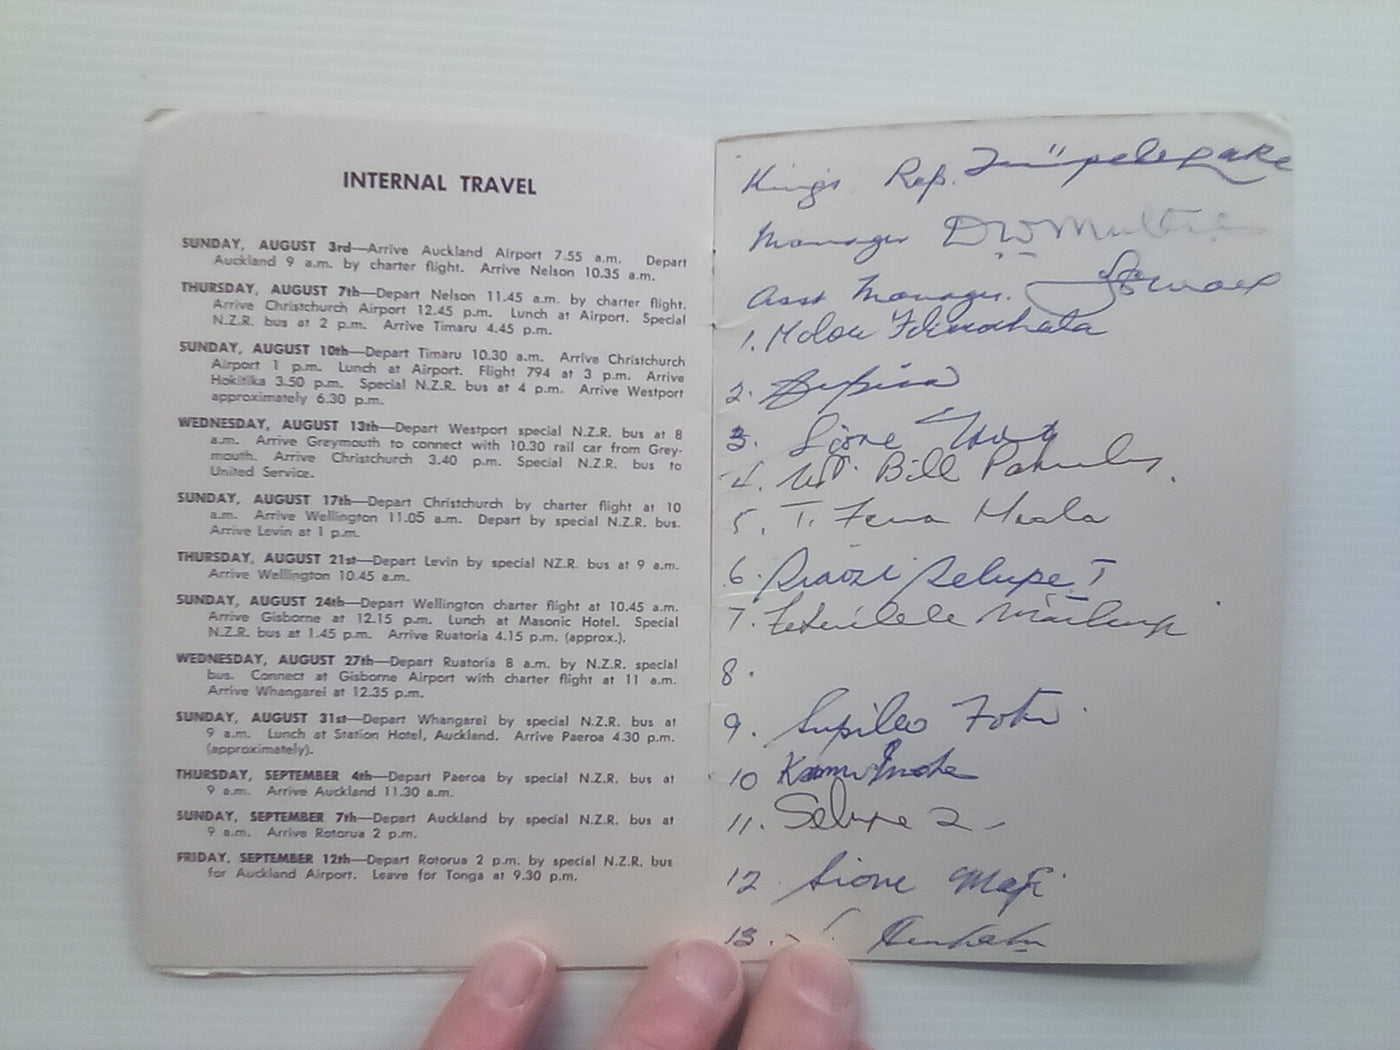 INTERNAL TRAVEL
SUNDAY, AUGUST 3rd—Arrive Auckland Airport 7.55 a.m. Depart
Auckland 9 a.m. by charter flight. Arrive Nelson 10.35 a.m.
THURSDAY, AUGUST 7th—Depart Nelson 11.45 a.m. by charter flight.
Arrive Christchurch Airport 12.45 p.m. Lunch at Airport. Special
N.Z.R. bus at 2 p.m. Arrive Timaru 4.45 p.m.
SUNDAY, AUGUST 10th—Depart Timaru 10.30 a.m. Arrive Christchurch
Airport 1 p.m. Lunch at Airport. Flight 794 at 3 p.m. Arrive
Hokitika 3.50 p.m. Special N.Z.R. bus at 4 p.m. Arrive Westport
approximately 6.30 p.m.
WEDNESDAY, AUGUST 13th—Depart Westport special N.Z.R. bus at 8
a.m. Arrive Greymouth to connect with 10.30 rail car from Grey-
mouth. Arrive Christchurch 3.40 p.m. Special N.Z.R. bus to
United Service.
SUNDAY, AUGUST 17th—Depart Christchurch by charter flight at 10
a.m. Arrive Wellington 11.05 a.m. Depart by special N.Z.R. bus.
Arrive Levin at 1 p.m.
THURSDAY, AUGUST 21st—Depart Levin by special NZ.R. bus at 9 a.m.
Arrive Wellington 10.45 a.m.
SUNDAY, AUGUST 24th—Depart Wellington charter flight at 10.45 a.m.
Arrive Gisborne at 12.15 p.m. Lunch at Masonic Hotel. Special
N.Z.R. bus at 1.45 p.m. Arrive Ruatoria 4.15 p.m. (approx.).
WEDNESDAY, AUGUST 27th—Depart Ruatoria 8 a.m. by N.Z.R. special
bus. Connect at Gisborne Airport with charter flight at 11 a.m.
Arrive Whangarei at 12.35 p.m.
SUNDAY, AUGUST 31st—Depart Whangarei by special N.Z.R. bus at
9 a.m. Lunch at Station Hotel, Auckland. Arrive Paeroa 4.30 p.m.
(approximately).
THURSDAY, SEPTEMBER 4th—Depart Paeroa by special N.Z.R. bus at
9 a.m. Arrive Auckland 11.30 a.m.
SUNDAY, SEPTEMBER 7th—Depart Auckland by special N.Z.R. bus at
9 a.m. Arrive Rotorua 2 p.m.
FRIDAY, SEPTEMBER 12th—Depart Rotorua 2 p.m. by special N.Z.R. bus
for Auckland Airport. Leave for Tonga at 9.30 p.m.
Kings Rep. Tu'ipelehake
Manager
Asst Manager.
1.
2.
3. Sione
4. Bill
5. T.
6.
7.
8.
9.
10
11. Selupe 2
12 Sione Mafi
13.